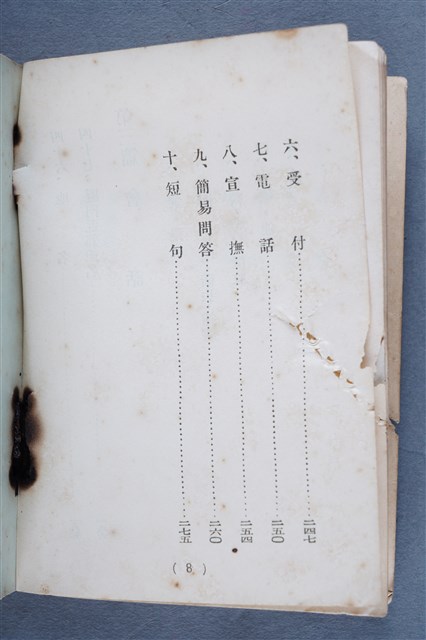 六、受付……二四七
七、電話……二五〇
八、宣撫……二五四
九、簡易問答……二六〇
十、短句……二七五
(8)